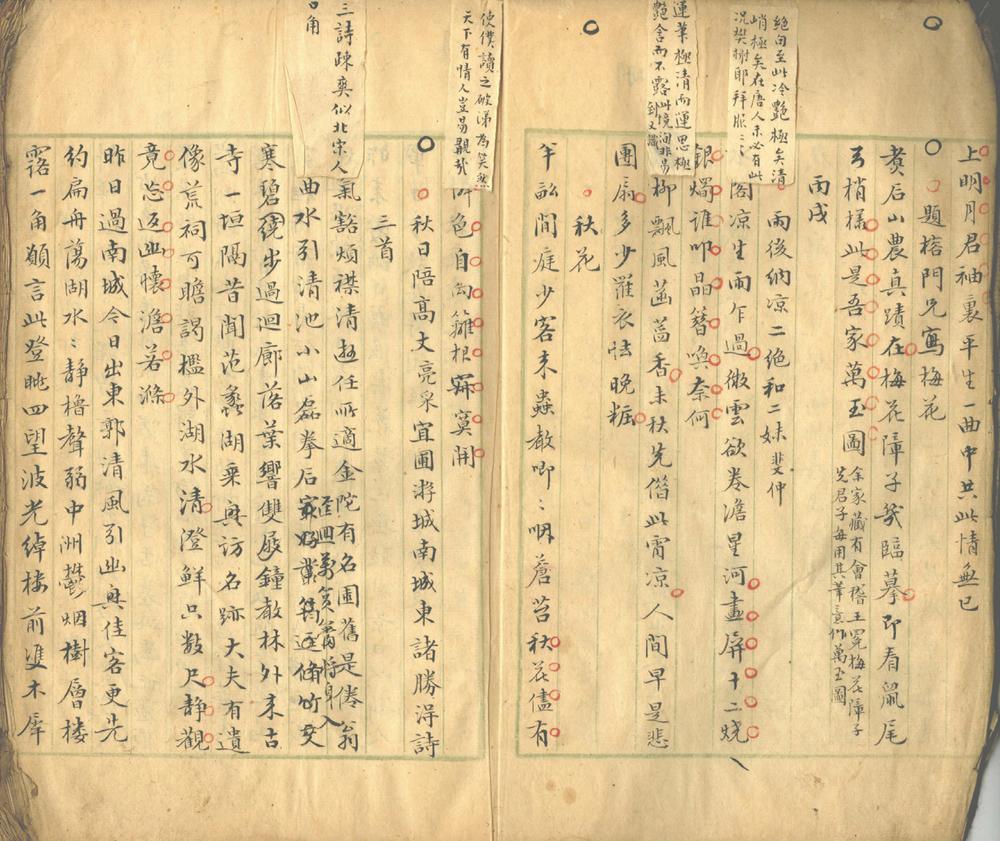 上明月君袖裏平生一曲中共此情無已
題榕門兄寫梅花
煑石山農真蹟在梅花障子幾臨摹即看鼠尾
弓梢樣此是吾家萬玉圖
余家藏有會稽王冕梅花障子
先君子每用其筆意作萬玉圖
丙戌
雨後納凉二絕和二妹斐仲
閣凉生雨乍過微雲欲卷澹星河畫屏十二燒
銀燭誰叩晶簪喚奈何
柳飄風菡萏香未秋先借此宵凉人間早是悲
團扇多少羅衣怯晚粧
秋花
午訟閒庭少客來蟲聲唧〻咽蒼苔秋花儘有
色自向籬根寂寞開
秋日陪高大亮采宜圃游城南城東諸勝得詩
三首
氣豁煩襟清遊任所適金陀有名圃舊是倦翁
曲水引清池小山磊拳石
修竹交
寒碧繞步過迴廊落葉響雙屐鐘聲林外來古
寺一垣隔昔聞范蠡湖乗興訪名跡大夫有遺
像荒祠可瞻謁檻外湖水清澄鮮只數尺静觀
竟忘返幽懷澹若滌
昨日過南城今日出東郭清風引幽興佳客更先
約扁舟蕩湖水〻静櫓聲弱中洲鬱烟樹層樓
露一角願言此登眺四望波光綽樓前雙木犀
絕句至此冷艷極矣清
峭極矣在唐人亦必有此
况樊榭耶拜服〻〻
運筆極清而運思極
艷含而不露此境洵非易
到又識
使僕讀之破涕為笑然
天下有情人豈易覯哉
三詩疎爽似北宋人
口角